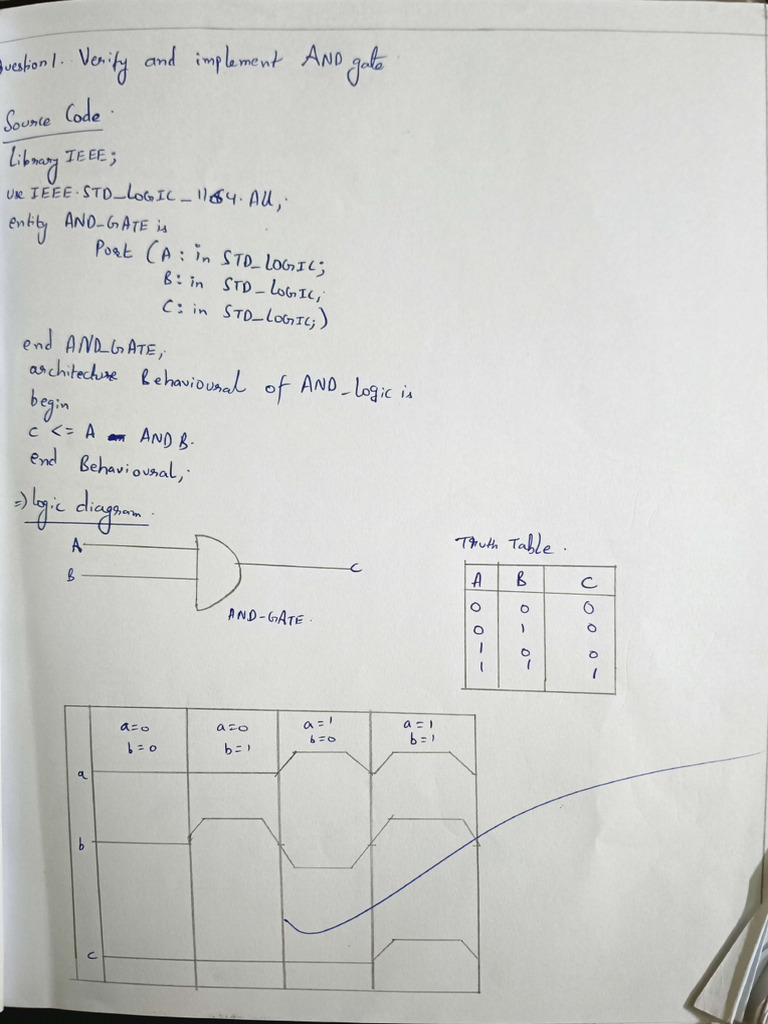 Question 1. Verify and implement AND gate
Source Code.
Library IEEE;
use IEEE.STD_LOGIC_1164.All;
entity AND-GATE is
Port (A: in STD_LOGIC;
B: in STD_LOGIC;
C: in STD_LOGIC;)
end AND_GATE;
architecture Behavioural of AND_logic is
begin
C <= A AND B.
end Behavioural;
=) logic diagram.
A
B
C
AND-GATE.
Truth Table.
A B C
0 0 0
0 1 0
1 0 0
1 1 1
a=0 a=0 a=1 a=1
b=0 b=1 b=0 b=1
a
b
c